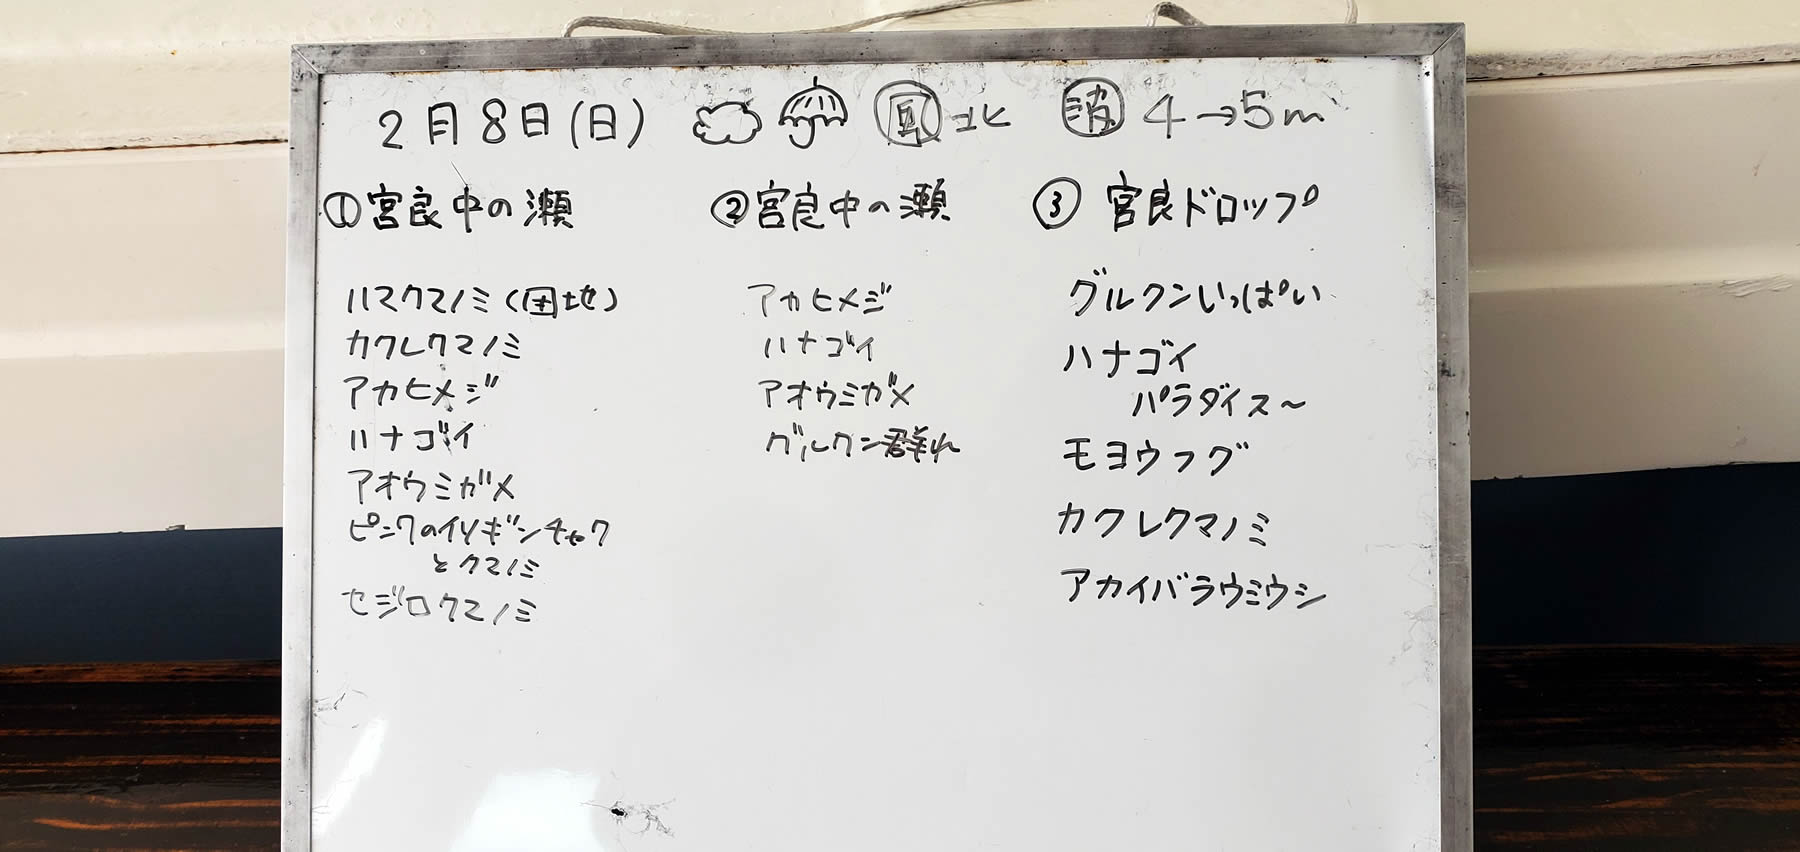 2月8日(日) 風 北 波 4→5m
①宮良中の瀬
ハマクマノミ(団地)
カクレクマノミ
アカヒメジ
ハナゴイ
アオウミガメ
ピンクのイソギンチャク
とクマノミ
セジロクマノミ
②宮良中の瀬
アカヒメジ
ハナゴイ
アオウミガメ
グルクン群れ
③ 宮良ドロップ
グルクンいっぱい
ハナゴイ
パラダイス～
モヨウフグ
カクレクマノミ
アカイバラウミウシ